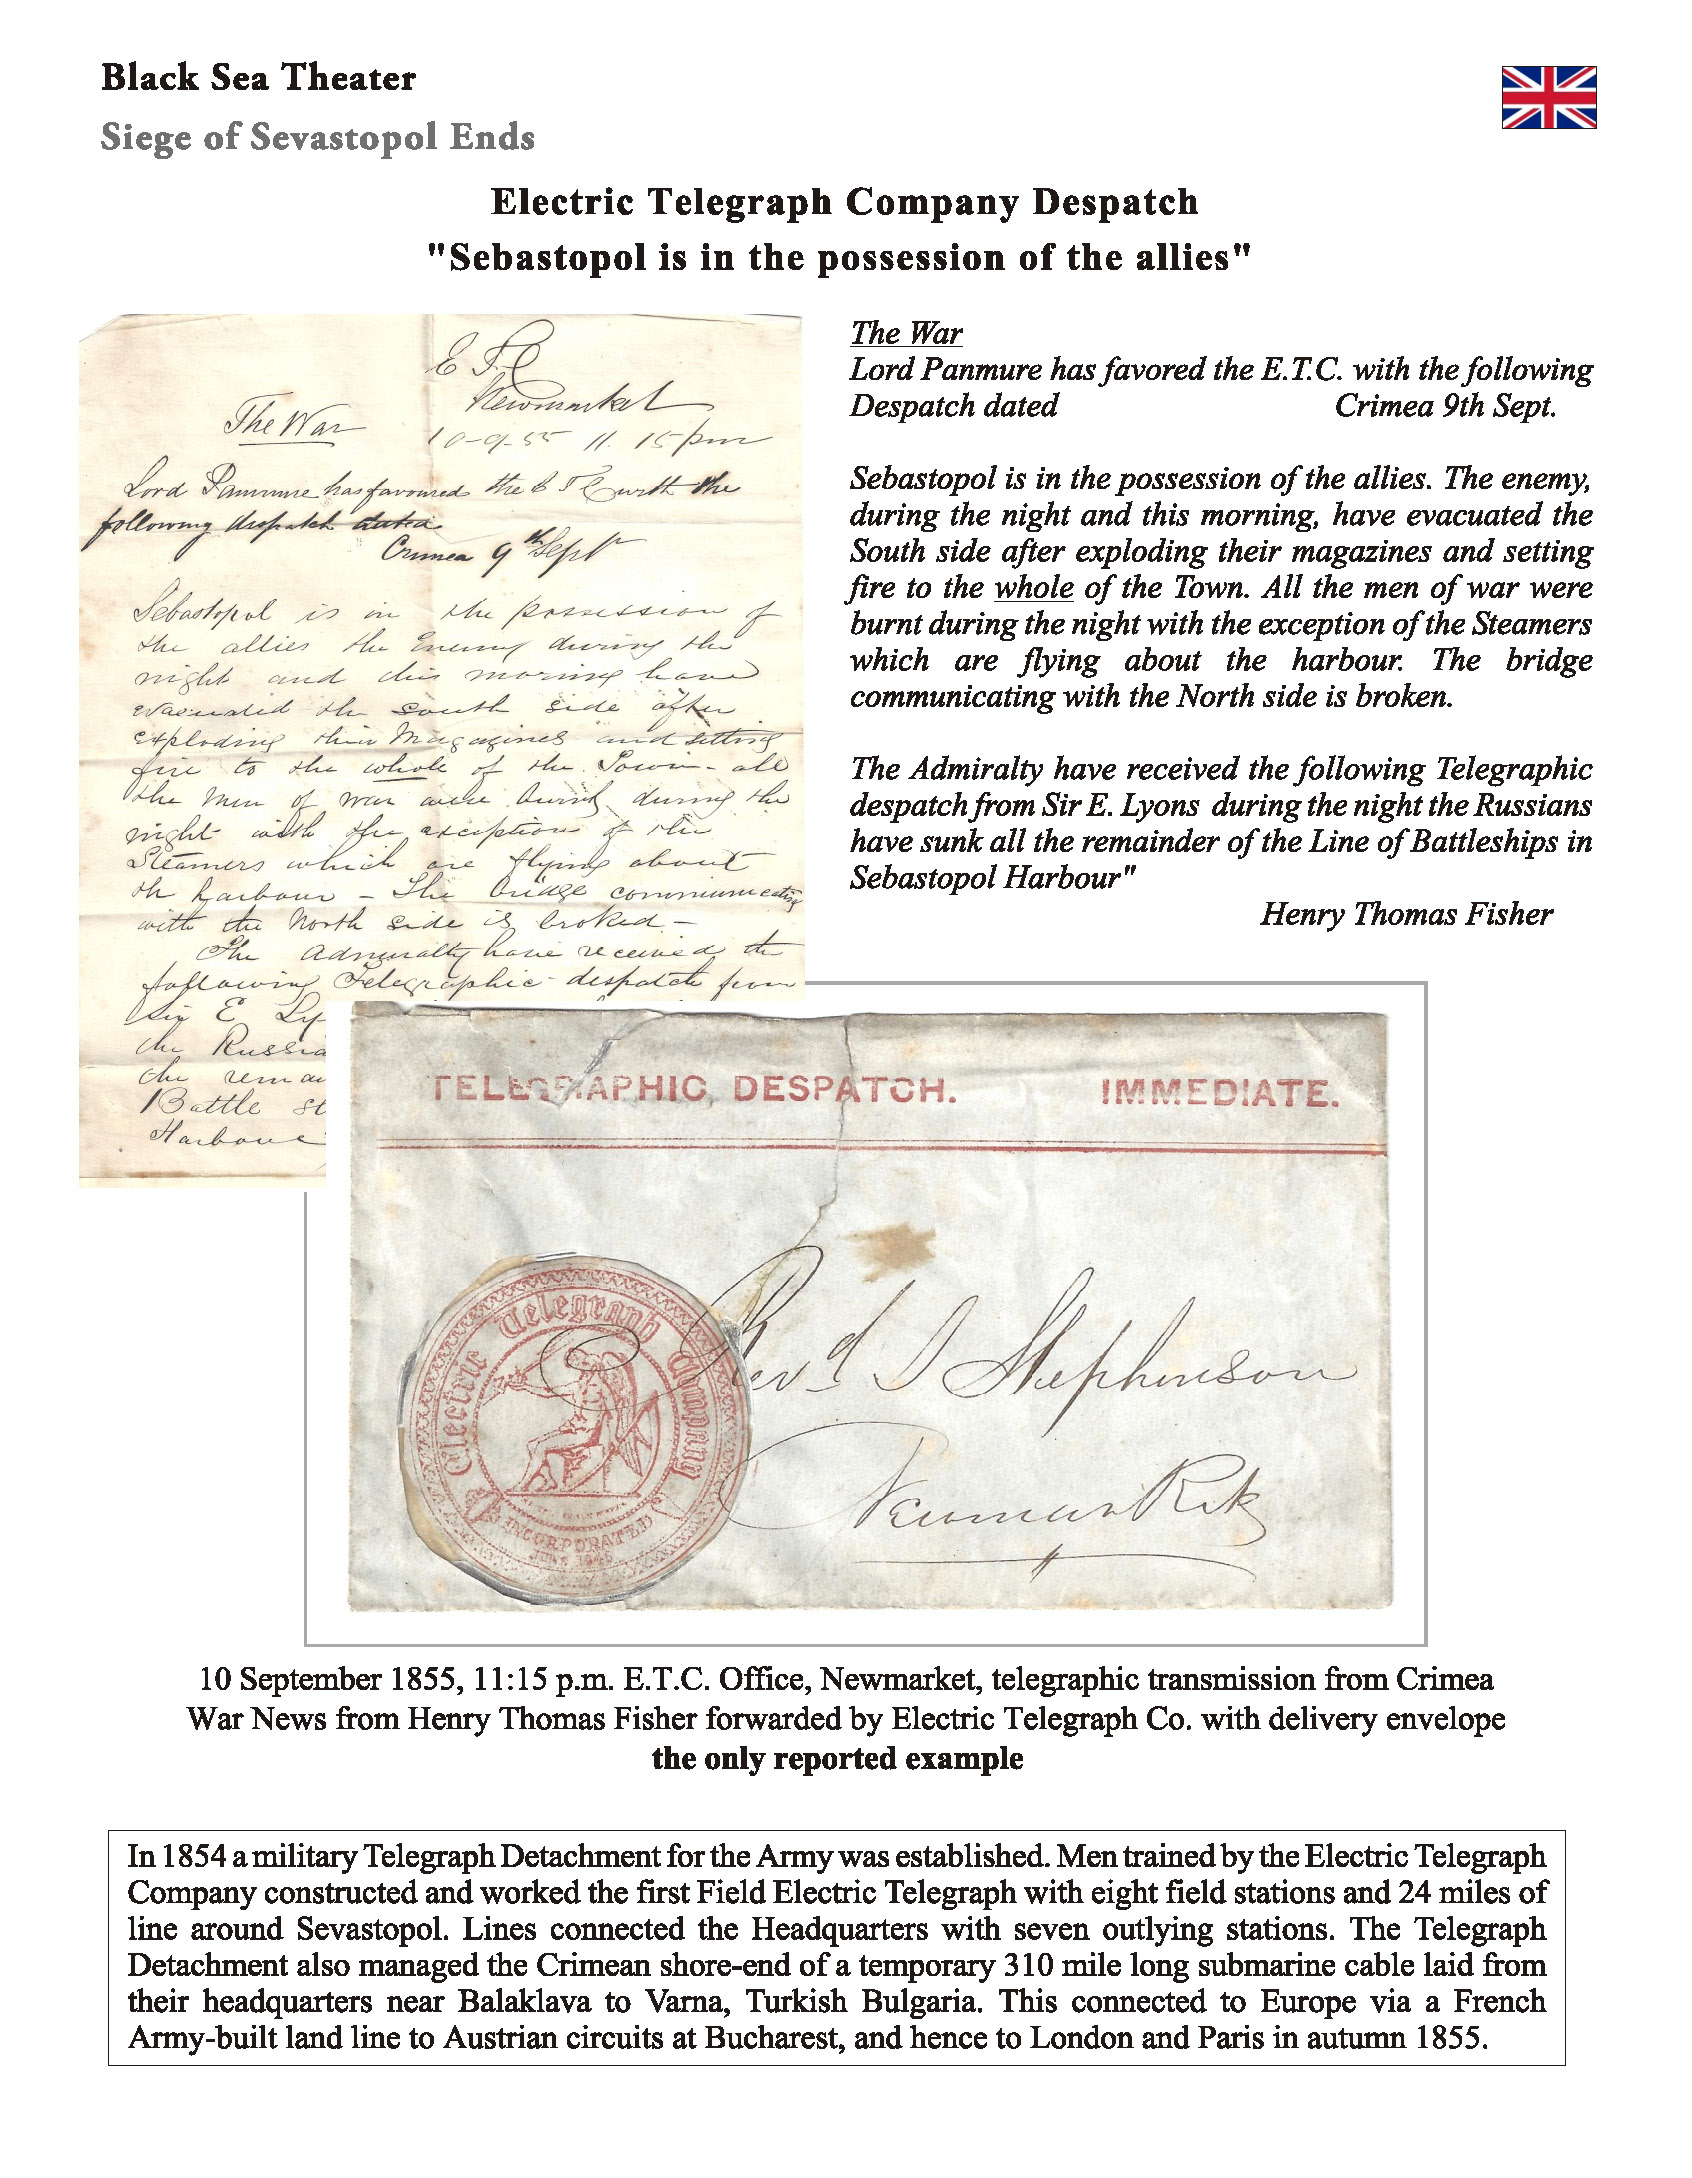 Black Sea Theater
Siege of Sevastopol Ends
Electric Telegraph Company Despatch
"Sebastopol is in the possession of the allies"
E T C
Newmarket
The War
10-9-55 11.15 pm
Lord Panmure has favoured the E T C with the
following despatch dated
Crimea 9th Sept
Sebastopol is in the possession of
the allies the Enemy during the
night and this morning have
evacuated the South side after
exploding their Magazines and setting
fire to the whole of the Town - all
the Men of War were burnt during the
night with the exception of the
Steamers which are flying about
th harbour - The bridge communicating
with the North side is broked -
The Admiralty have received the
following Telegraphic despatch from
Sir E Ly
the Russia
the remai
Battle
Harbour
The War
Lord Panmure has favored the E.T.C. with the following
Despatch dated Crimea 9th Sept.
Sebastopol is in the possession of the allies. The enemy,
during the night and this morning, have evacuated the
South side after exploding their magazines and setting
fire to the whole of the Town. All the men of war were
burnt during the night with the exception of the Steamers
which are flying about the harbour. The bridge
communicating with the North side is broken.
The Admiralty have received the following Telegraphic
despatch from Sir E. Lyons during the night the Russians
have sunk all the remainder of the Line of Battleships in
Sebastopol Harbour"
Henry Thomas Fisher
TELEGRAPHIC DESPATCH. IMMEDIATE.
Electric Telegraph Company
INCORPORATED
Revd J Stephenson
Newmarket
10 September 1855, 11:15 p.m. E.T.C. Office, Newmarket, telegraphic transmission from Crimea
War News from Henry Thomas Fisher forwarded by Electric Telegraph Co. with delivery envelope
the only reported example
In 1854 a military Telegraph Detachment for the Army was established. Men trained by the Electric Telegraph
Company constructed and worked the first Field Electric Telegraph with eight field stations and 24 miles of
line around Sevastopol. Lines connected the Headquarters with seven outlying stations. The Telegraph
Detachment also managed the Crimean shore-end of a temporary 310 mile long submarine cable laid from
their headquarters near Balaklava to Varna, Turkish Bulgaria. This connected to Europe via a French
Army-built land line to Austrian circuits at Bucharest, and hence to London and Paris in autumn 1855.